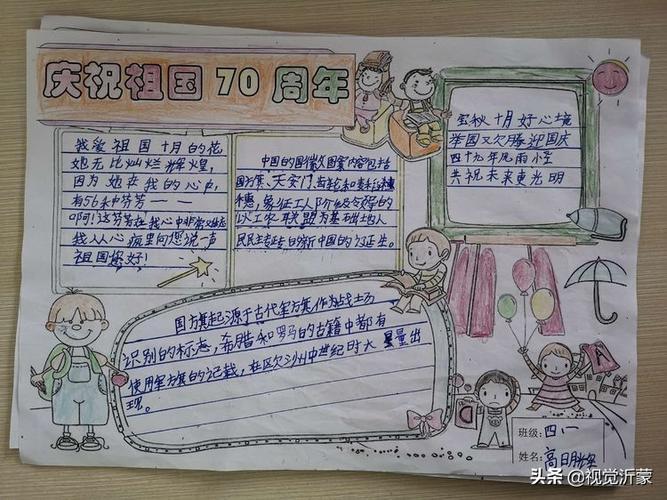 庆祝祖国70周年
我爱祖国十月的花
她无比灿烂辉煌,
因为她在我的心中,
有56种芬芳一一
啊!这芬芳在我心中非常
我从心里向您说一声
祖国您好!
中国的国徽图案内容包括
国旗、天安门、齿轮和麦稻
穗,象征工人阶级领导的
以工农联盟为基础的人
民民主专政的新中国的诞生。
金秋十月好心境
举国欢腾迎国庆
四十九年风雨
共祝未来更光明
国旗起源于古代军旗作为战士
识别的标志,希腊和罗马的古籍中都有
使用军旗的记载,在欧洲中世纪时大量出
现。
班级:四一
姓名:高日
头条 @视觉沂蒙